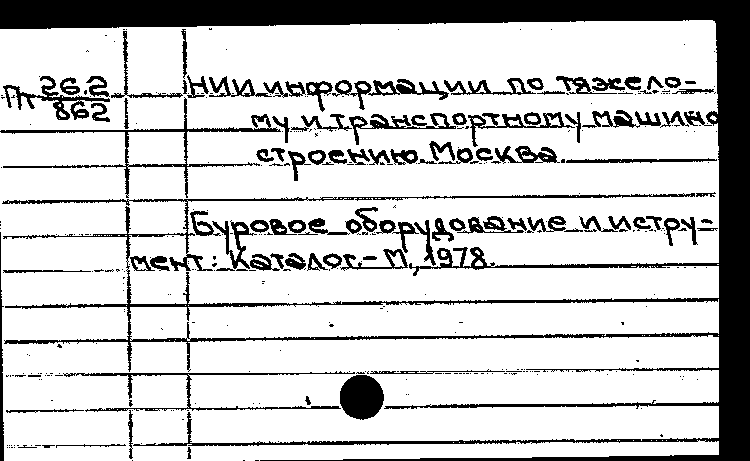 Пт 26.2
862
НИИ информации по тяжело-
му и транспортному машино
строению. Москва.
Буровое оборудование и истру-
мент: Каталог.- М., 1978.